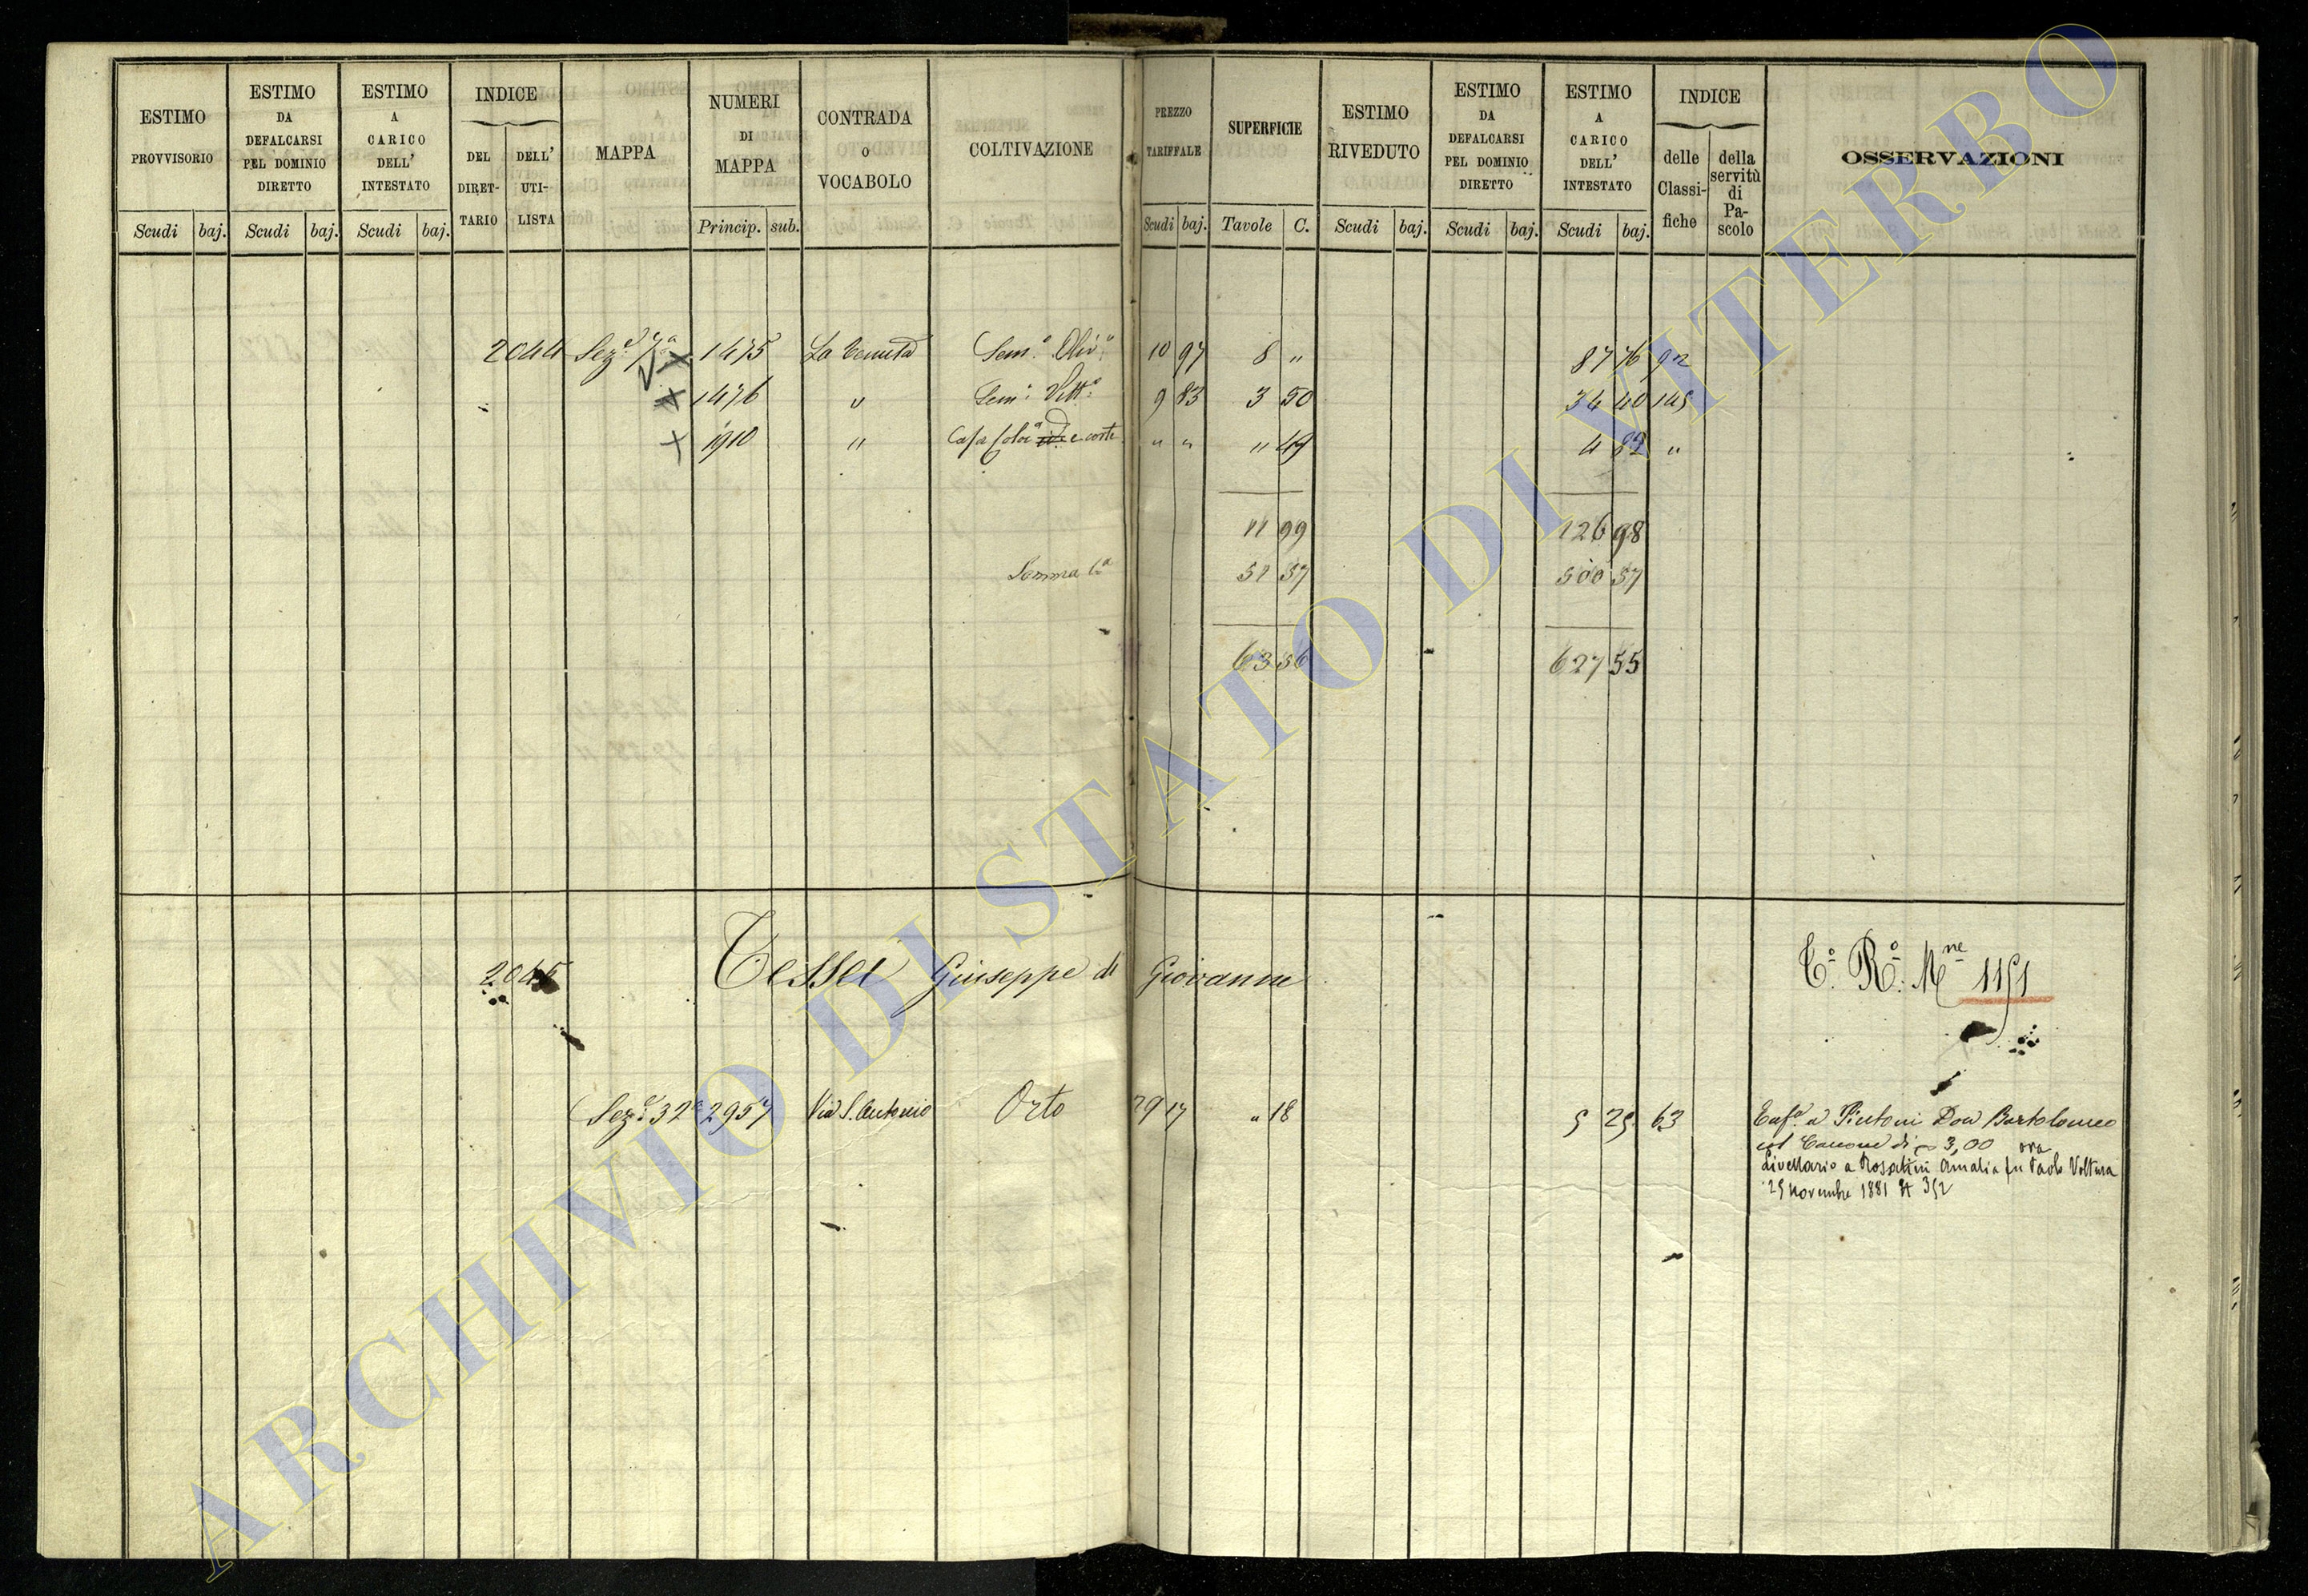 ESTIMO PROVVISORIO Scudi baj.
ESTIMO DA DEFALCARSI PEL DOMINIO DIRETTO Scudi baj.
ESTIMO A CARICO DELL' INTESTATO Scudi baj.
INDICE DEL DIRET-TARIO DELL' UTI-LISTA
MAPPA
NUMERI DI MAPPA Princip. sub.
CONTRADA O VOCABOLO
COLTIVAZIONE
PREZZO TARIFFALE Scudi baj.
SUPERFICIE Tavole C.
ESTIMO RIVEDUTO Scudi baj.
ESTIMO DA DEFALCARSI PEL DOMINIO DIRETTO Scudi baj.
ESTIMO A CARICO DELL' INTESTATO Scudi baj.
INDICE delle Classi-fiche della servitù di Pa-scolo
OSSERVAZIONI
2044 Sez.e 7a 1475 La Tenuta Sem.o Oliv.o 10 97 8 " 87 76 92
1476 " Sem.o Vitt.o 9 83 3 50 34 40 145
1910 " Casa Colon.a e corte " " " 49 4 82 "
11 99 126 98
Somma 6a 51 57 500 57
63 56 627 55
2045 Tessei Giuseppe di Giovanni T.o R.o M.ne 1151
Sez.e 32a 2957 Via S. Antonio Orto 29 17 " 18 5 25 63 Enf.a a Pintoni Don Bartolomeo
col Canone di 3,00 ora
Livellario a Rosatini Amalia fu Paolo Voltura
25 Novembre 1881 N 352
ARCHIVIO DI STATO DI VITERBO